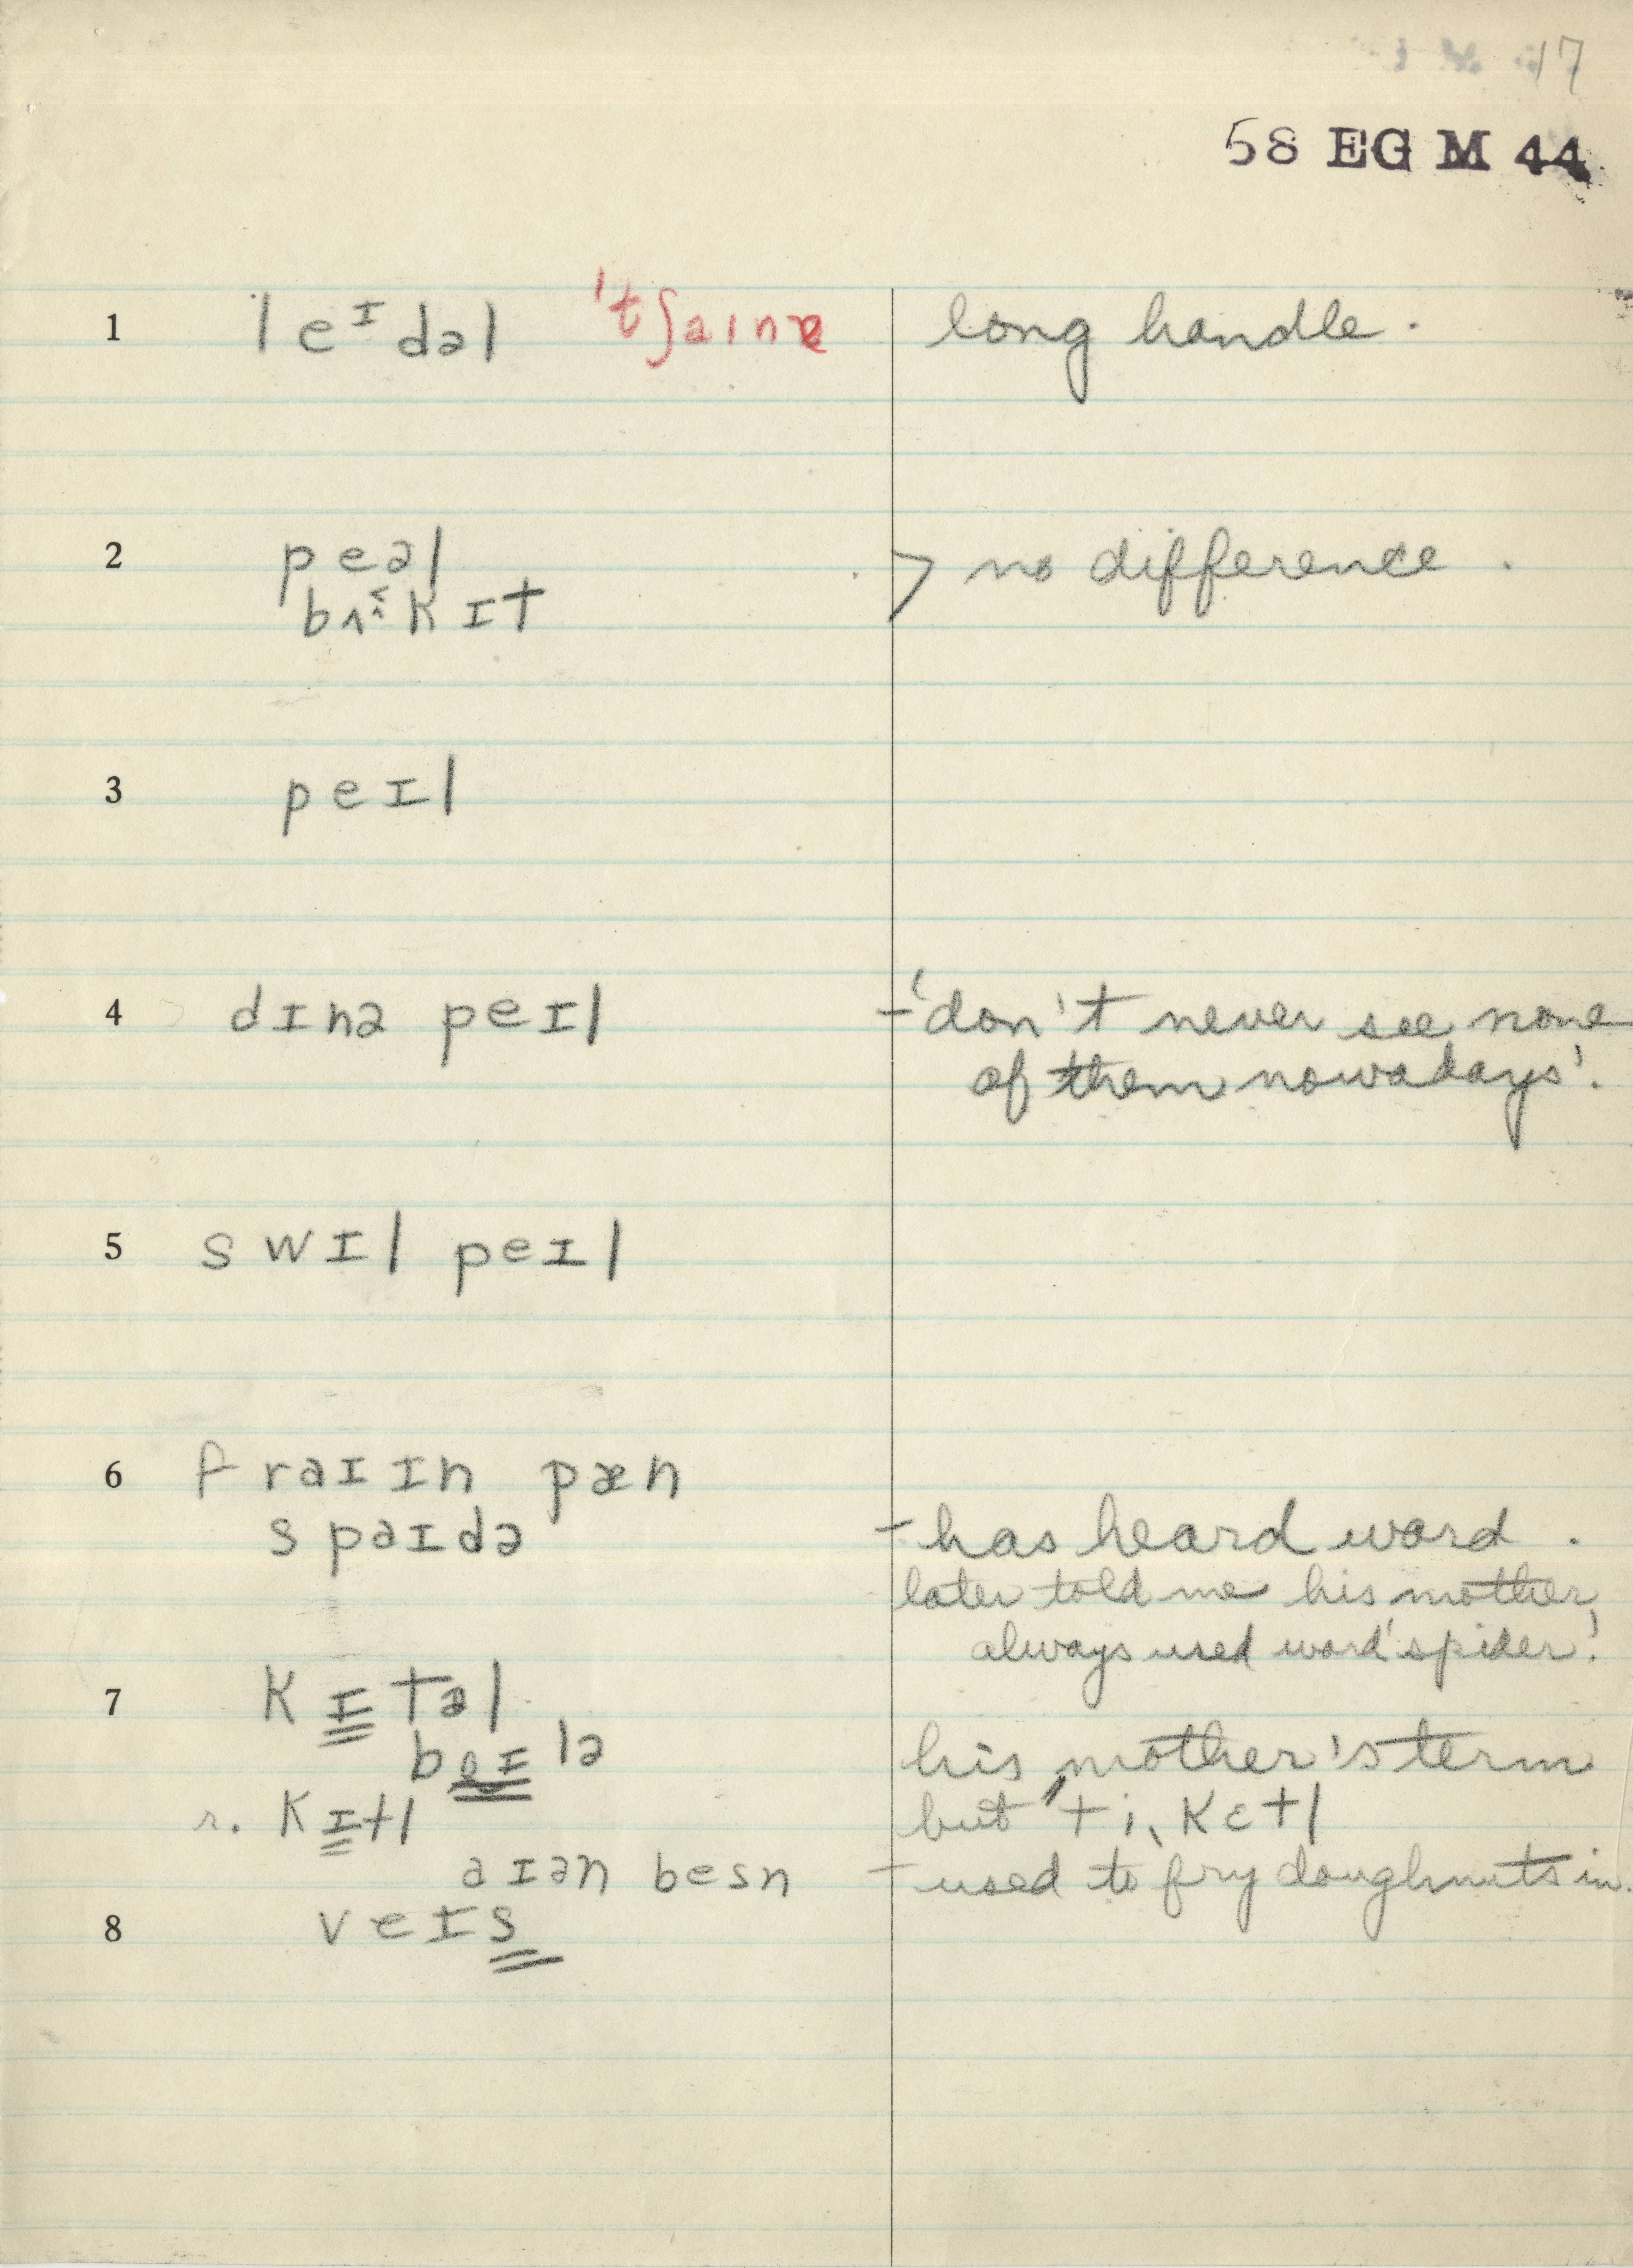 17
58 EG M 44
1 leᴵdəl 'tʃaınə long handle.
2 peəl > no difference.
bʌkɪt
3 peɪl
4 dɪnə peɪl - 'don't never see none
of them nowadays'.
5 swɪl peɪl
6 fraɪɪn pæn
spaɪdə - has heard word.
later told me his mother
always used word 'spider'.
7 kɪtəl
bɔɪlə his mother's term
r. kɪtl but ti, kɛtl
aɪən besn - used to fry doughnuts in.
8 veɪs